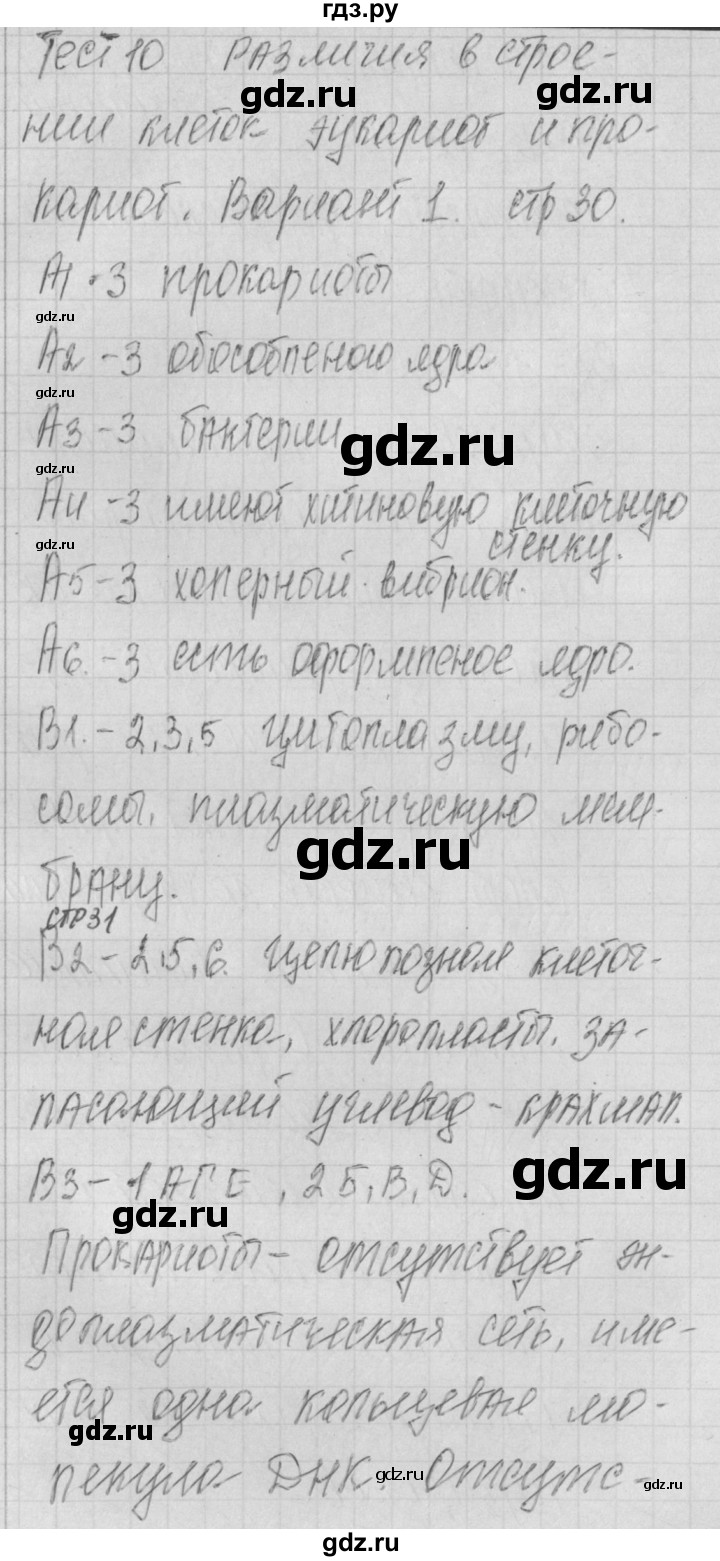 гдз.ру
Тест 10 Различия в строе-
gdz.ru
gdz.ru
нии клеток эукариот и про-
кариот. Вариант 1. стр 30.
gdz.ru
gdz.ru
А1 - 3 прокариоты
gdz.ru
А2 - 3 обособленого ядра
gdz.ru
А3 - 3 бактерии
gdz.ru
gdz.ru
А4 - 3 имеют хитиновую клеточную
стенку.
gdz.ru
А5 - 3 холерный вибрион.
А6. - 3 есть оформленое ядро.
В1. - 2, 3, 5 цитоплазму, рибо-
сомы, плазматическую мем-
gdz.ru
брану.
стр 31
В2 - 2, 5, 6. Целюлозная клеточ-
ная стенка, хлоропласты, за-
пасающий углевод - крахмал.
gdz.ru
В3 - 1 А Г Е , 2 Б, В, Д.
gdz.ru
Прокариоты - отсутствует эн-
доплазматическая сеть, име-
ется одна кольцевая мо-
gdz.ru
лекула ДНК. Отсутс-
gdz.ru
gdz.ru
gdz.ru